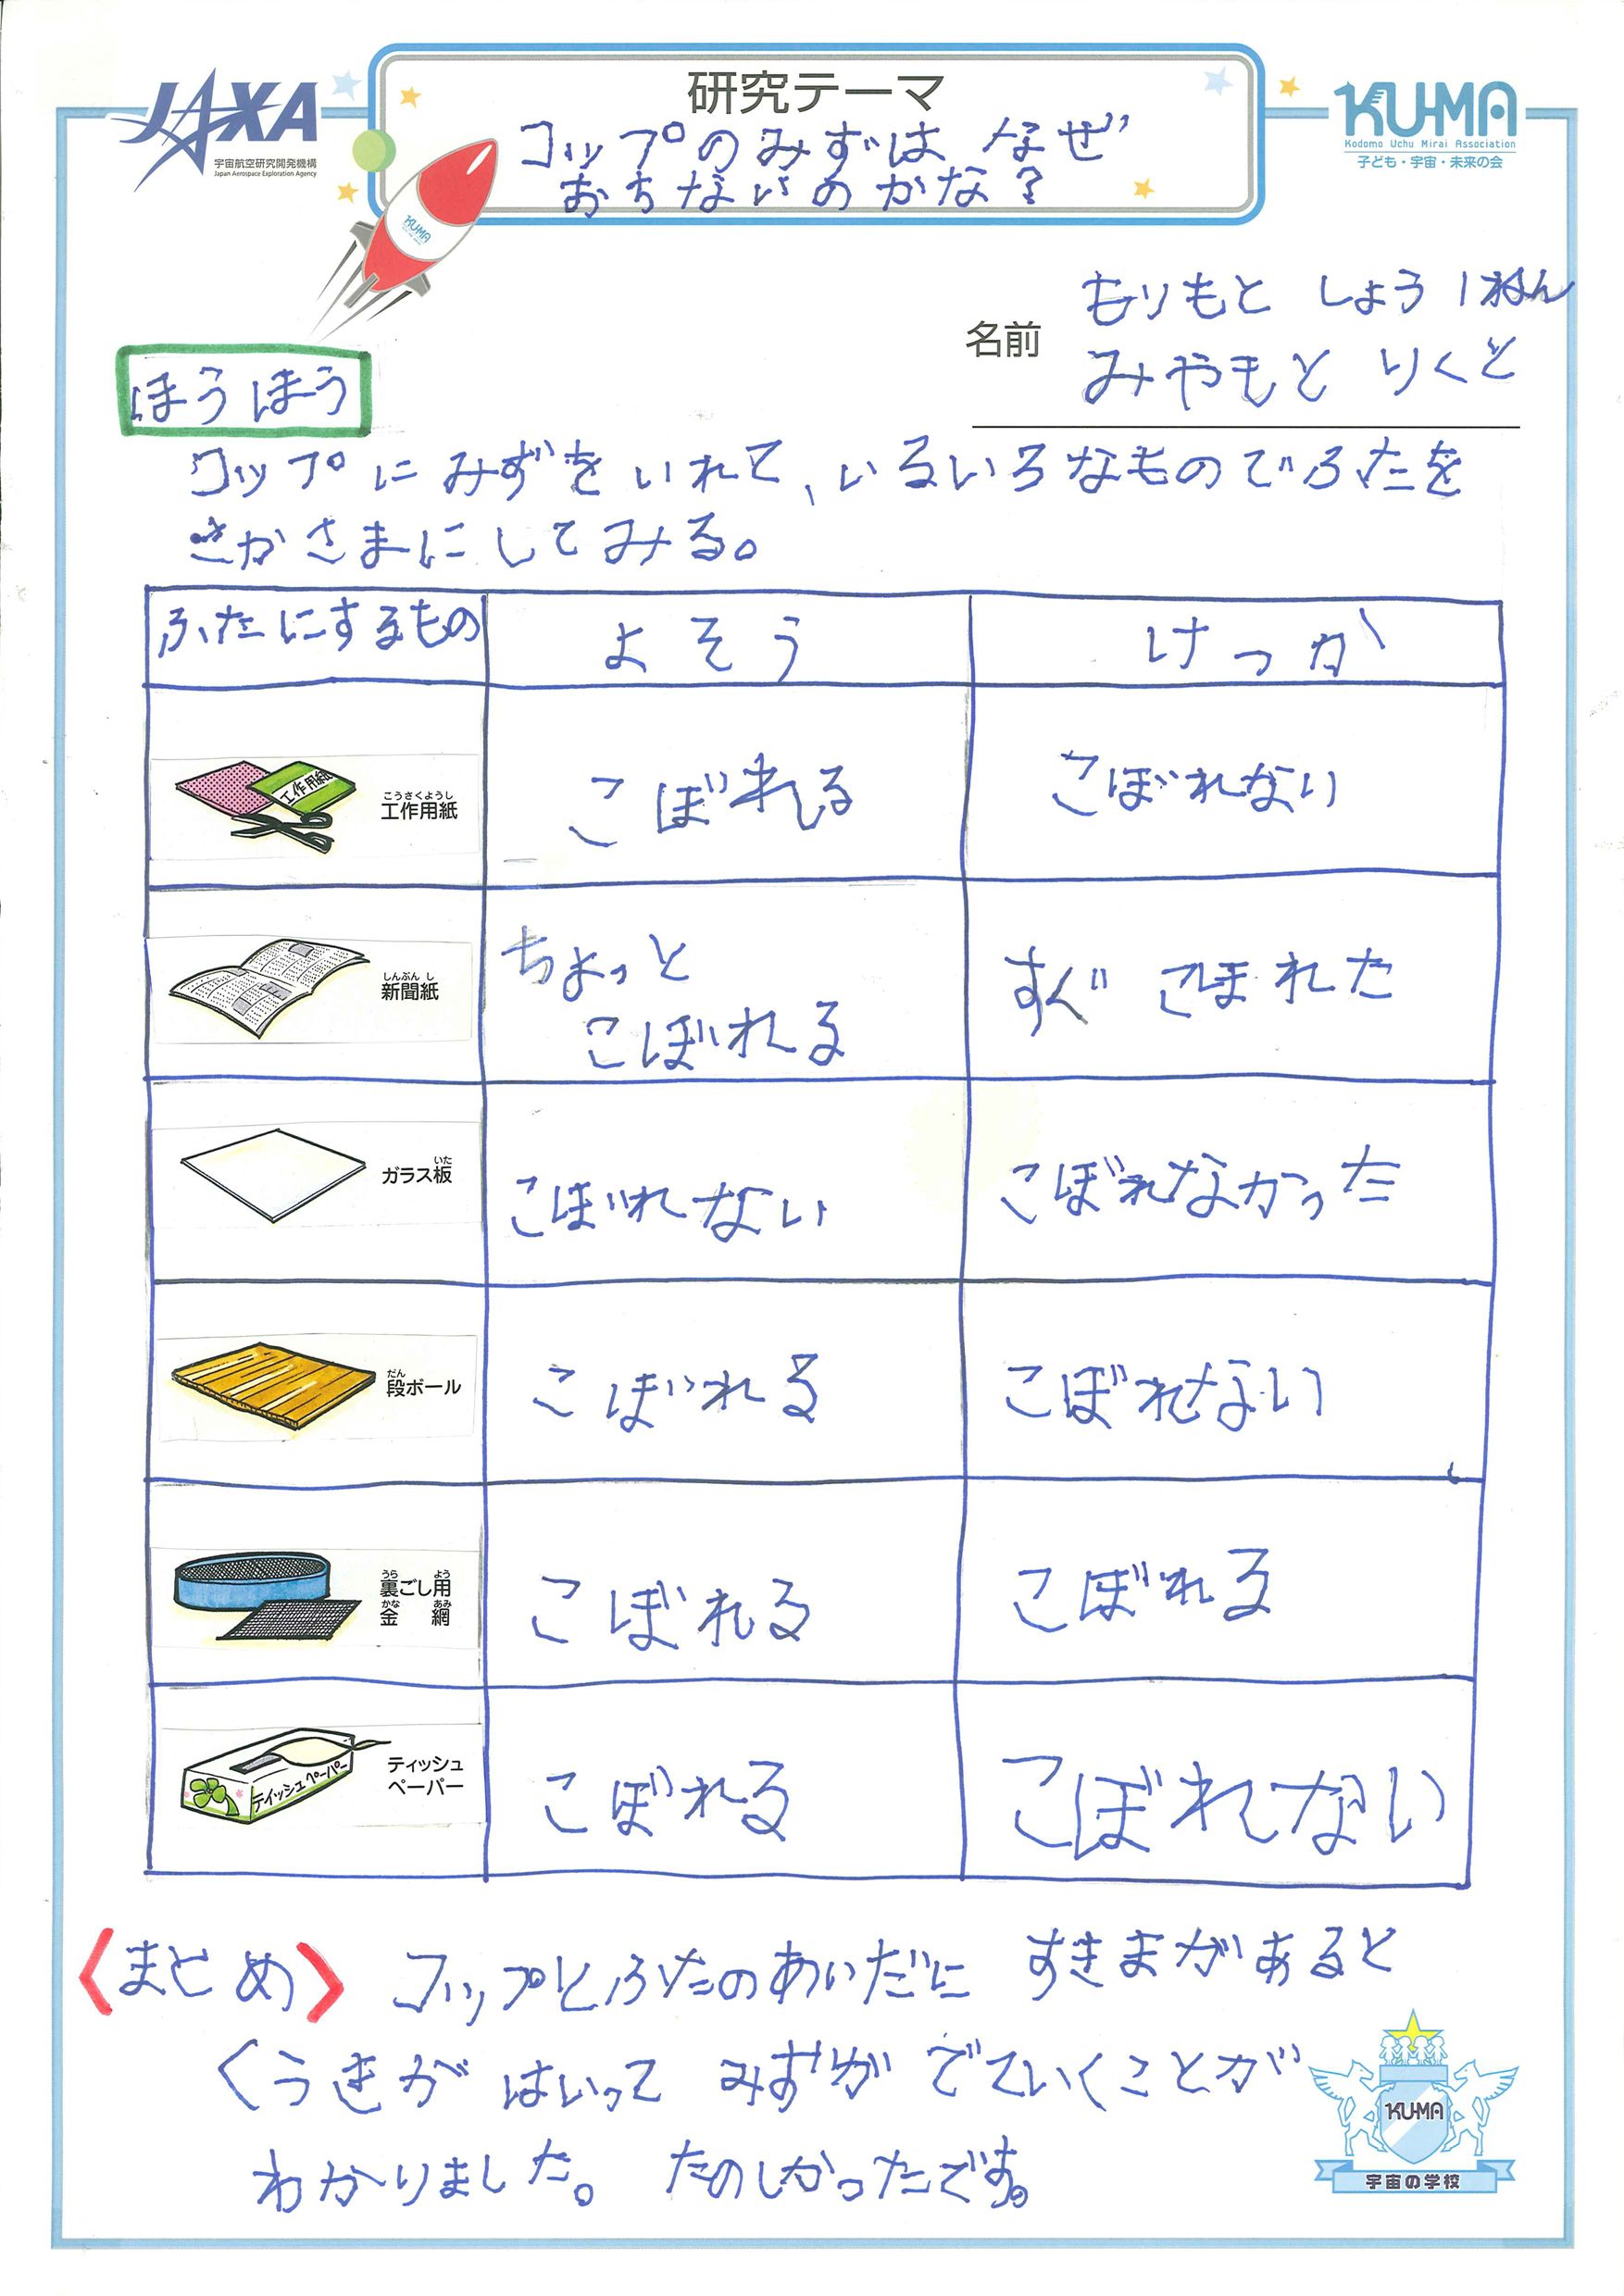 JAXA
宇宙航空研究開発機構
Japan Aerospace Exploration Agency
研究テーマ
コップのみずは なぜ
おちないのかな?
KU-MA
Kodomo Uchu Mirai Association
子ども・宇宙・未来の会
KUMA
名前
もりもと しょう 1ねん
みやもと りくと
ほうほう
コップにみずをいれて、いろいろなものでふたを
さかさまにしてみる。
ふたにするもの よそう けっか
工作用紙
こうさくようし
工作用紙
こぼれる
こぼれない
しんぶん し
新聞紙
ちょっと
こぼれる
すぐ こぼれた
いた
ガラス板
こぼれない
こぼれなかった
だん
段ボール
こぼれる
こぼれない
うら よう
裏ごし用
かな あみ
金 網
こぼれる
こぼれる
ティッシュペーパー
ティッシュ
ペーパー
こぼれる
こぼれない
〈まとめ〉 コップとふたのあいだに すきまがあると
くうきが はいって みずが でていくことが
わかりました。 たのしかったです。
KU-MA
宇宙の学校